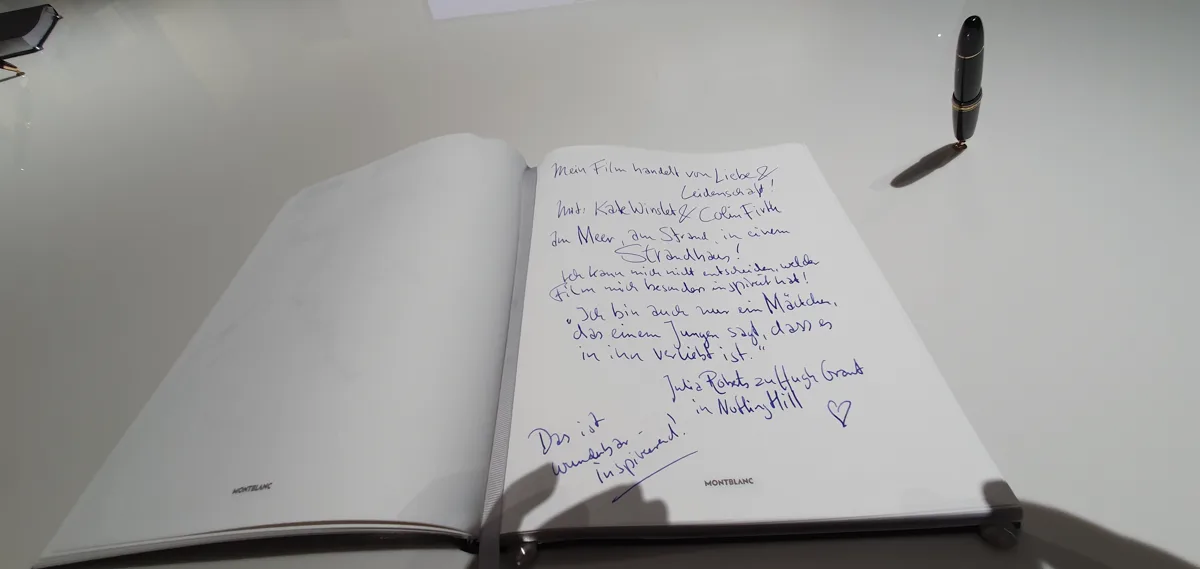 Mein Film handelt von Liebe &
Leidenschaft!
Mit: Kate Winslet & Colin Firth
Am Meer, am Strand, in einem
Strandhaus!
Ich kann mich nicht entscheiden, welcher
Film mich besonders inspiriert hat!
„Ich bin auch nur ein Mädchen,
das einem Jungen sagt, dass es
in ihn verliebt ist."
Julia Roberts zu Hugh Grant
in Notting Hill
Das ist
wunderbar -
inspirierend!
MONTBLANC
MONTBLANC